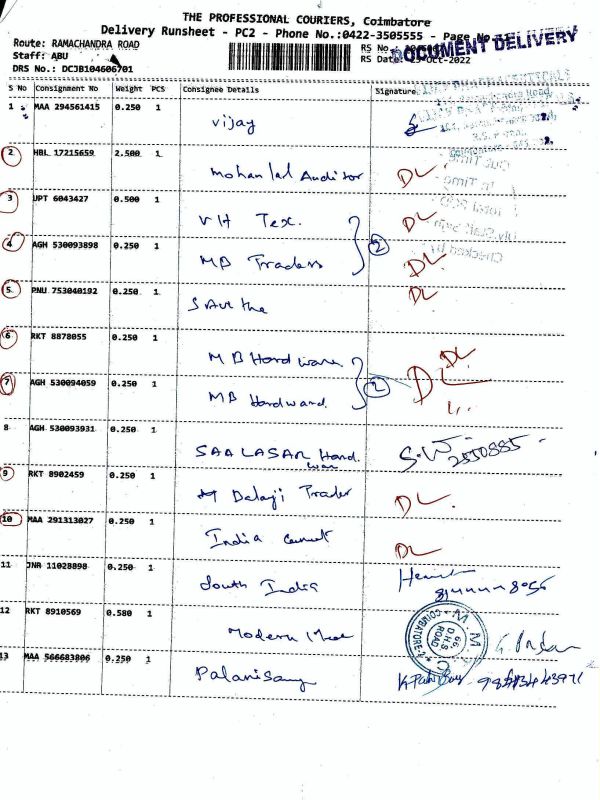 THE PROFESSIONAL COURIERS, Coimbatore
Delivery Runsheet - PC2 - Phone No.:0422-3505555 - Page No
DOCUMENT DELIVERY
Route: RAMACHANDRA ROAD
Staff: ABU
DRS No.: DCJB104606701
RS No
RS Date: 25-Oct-2022
S No Consignment No Weight PCS Consignee Details Signature
1 MAA 294561415 0.250 1 Vijay
2 HBL 17215659 2.500 1 Mohanlal Auditor DL
3 UPT 6043427 0.500 1 VH Tex. DL
4 AGH 530093898 0.250 1 MB Traders 2 DL
5 PNU 753040192 0.250 1 Save the DL
6 RKT 8878055 0.250 1 MB Hardware DL
7 AGH 530094059 0.250 1 MB Hardward. 2 DL
8 AGH 530093931 0.250 1 SAALASAR Hard war 2550885
9 RKT 8902459 0.250 1 Balaji Trader DL
10 MAA 291313027 0.250 1 India DL
11 JNR 11028898 0.250 1 South India
12 RKT 8910569 0.580 1 Modern
M.M.
66, D.H.S ROAD
COIMBATORE-2
13 MAA 566683806 0.250 1 Palanisamy